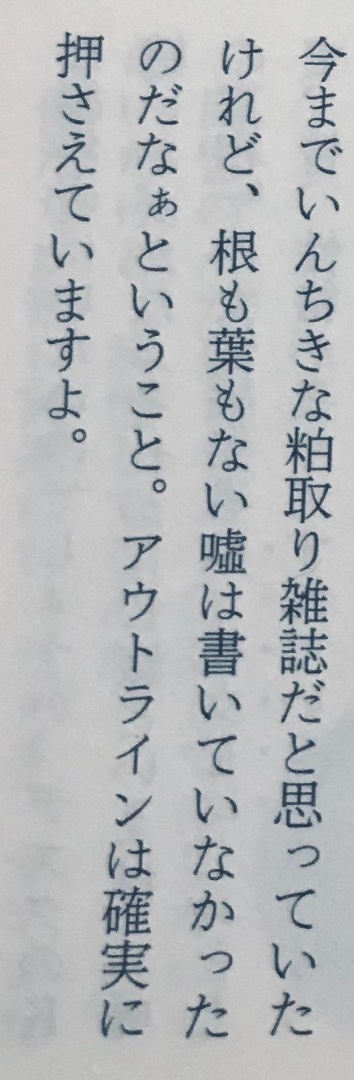 今までいんちきな粕取り雑誌だと思っていた
けれど、根も葉もない嘘は書いていなかった
のだなぁということ。アウトラインは確実に
押さえていますよ。